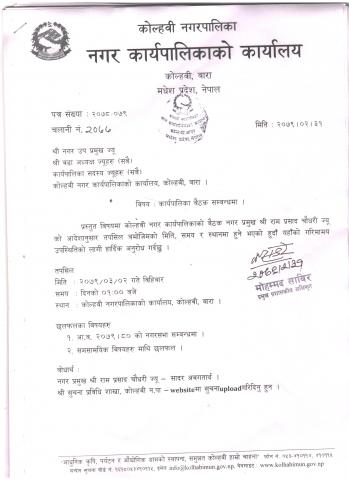 कोल्हवी नगरपालिका
नगर कार्यपालिकाको कार्यालय
कोल्हवी, बारा
मधेश प्रदेश, नेपाल
पत्र संख्या : २०७८-०७९
चलानी नं. २०७७
मिति : २०७९।०२।३१
श्री नगर उप प्रमुख ज्यू
श्री वडा अध्यक्ष ज्यूहरु (सबै)
कार्यपालिका सदस्य ज्यूहरु (सबै)
कोल्हवी नगर कार्यपालिकाको कार्यालय, कोल्हवी, बारा ।
विषय : कार्यपालिका बैठक सम्बन्धमा ।
प्रस्तुत विषयमा कोल्हवी नगर कार्यपालिकाको बैठक नगर प्रमुख श्री राम प्रसाद चौधरी ज्यू
को आदेशानुसार तपसिल बमोजिमको मिति, समय र स्थानमा हुने भएको हुदाँ यहाँको गरिमामय
उपस्थितिको लागी हार्दिक अनुरोध गर्दछु ।
तपसिल
मिति : २०७९/०३/०२ गते बिहिबार
समय : दिनको ०१:०० बजे
स्थान : कोल्हवी नगरपालिकाको कार्यालय, कोल्हवी, बारा ।
मोहम्मद साबिर
प्रमुख प्रशासकीय अधिकृत
छलफलका विषयहरु
१. आ.व. २०७९।८० को नगरसभा सम्बन्धमा ।
२. समसामयिक विषयहरु माथि छलफल ।
बोधार्थ :
नगर प्रमुख श्री राम प्रसाद चौधरी ज्यू – सादर अवगतार्थ ।
श्री सुचना प्रविधि शाखा, कोल्हवी न.पा – websiteमा सुचनाuploadगरिदिनु हुन ।
"आधुनिक कृषि, पर्यटन र औद्योगिक वासको स्थापना, समुन्नत कोल्हवी हाम्रो चाहना"
इमेल info@kolhabimun.gov.np, वेभसाइट www.kolhabimun.gov.np